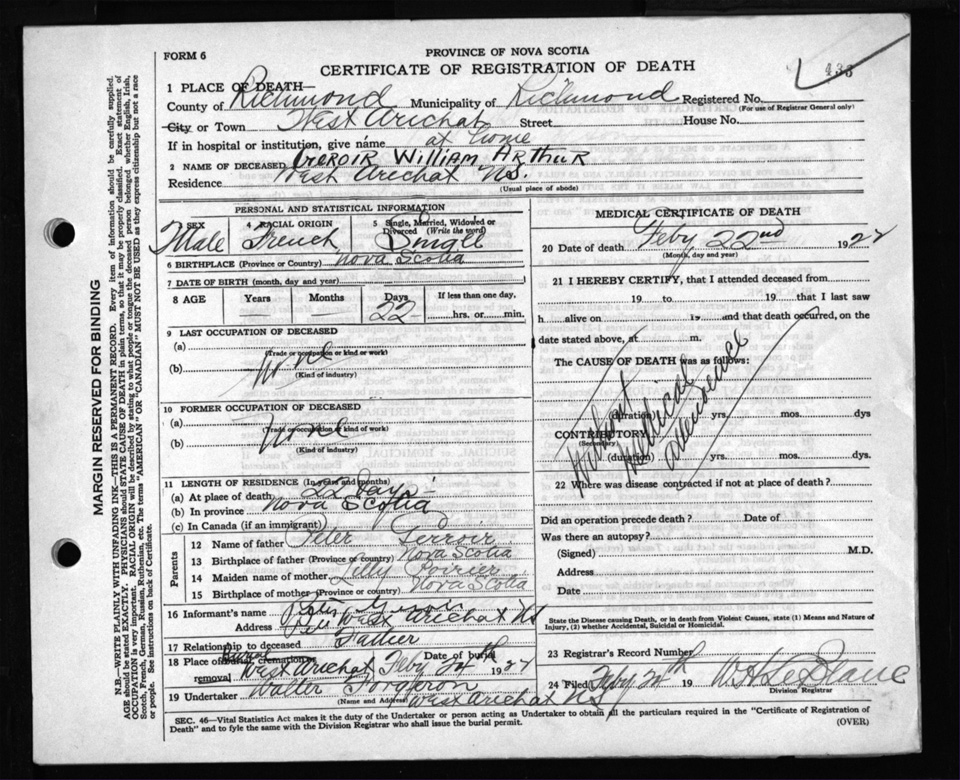 FORM 6
PROVINCE OF NOVA SCOTIA
CERTIFICATE OF REGISTRATION OF DEATH
433
1 PLACE OF DEATH—
County of Richmond Municipality of Richmond Registered No.
(For use of Registrar General only)
City or Town West Arichat Street House No.
If in hospital or institution, give name at home
2 NAME OF DECEASED William Arthur
Residence West Arichat N.S.
(Usual place of abode)
PERSONAL AND STATISTICAL INFORMATION
3 SEX 4 RACIAL ORIGIN 5 Single, Married, Widowed or Divorced (Write the word)
Male French Single
6 BIRTHPLACE (Province or Country) Nova Scotia
7 DATE OF BIRTH (month, day and year)
8 AGE Years Months Days If less than one day,
— — 22 hrs. or min.
9 LAST OCCUPATION OF DECEASED
(a)
(Trade or occupation or kind or work)
(b) None
(Kind of industry)
10 FORMER OCCUPATION OF DECEASED
(a)
(Trade or occupation or kind or work)
(b) None
(Kind of industry)
11 LENGTH OF RESIDENCE (In years and months)
(a) At place of death 22 days
(b) In province Nova Scotia
(c) In Canada (if an immigrant)
Parents
12 Name of father Peter
13 Birthplace of father (Province or country) Nova Scotia
14 Maiden name of mother Lilly Poirier
15 Birthplace of mother (Province or country) Nova Scotia
16 Informant's name Peter
Address West Arichat NS
17 Relationship to deceased Father
18 Place of burial, cremation or removal Burial West Arichat Date of burial Feby 24th 1922
19 Undertaker Walter Forgeron
(Name and Address) West Arichat NS
MEDICAL CERTIFICATE OF DEATH
20 Date of death Feby 22nd 1922
(Month, day and year)
21 I HEREBY CERTIFY, that I attended deceased from
19 to 19 that I last saw
h alive on 19 and that death occurred, on the
date stated above, at m.
The CAUSE OF DEATH was as follows:
Without Medical attendance
(duration) yrs. mos. dys
CONTRIBUTORY
(Secondary)
(duration) yrs. mos. dys.
22 Where was disease contracted if not at place of death?
Did an operation precede death? Date of
Was there an autopsy?
(Signed) M.D.
Address
Date
State the Disease causing Death, or in death from Violent Causes, state (1) Means and Nature of Injury, (2) whether Accidental, Suicidal or Homicidal.
23 Registrar's Record Number
24 Filed Feby 24th 19
Division Registrar
SEC. 46—Vital Statistics Act makes it the duty of the Undertaker or person acting as Undertaker to obtain all the particulars required in the "Certificate of Registration of
Death" and to fyle the same with the Division Registrar who shall issue the burial permit. (OVER)
MARGIN RESERVED FOR BINDING
N.B.—WRITE PLAINLY WITH UNFADING INK—THIS IS A PERMANENT RECORD. Every item of information should be carefully supplied.
AGE should be stated EXACTLY. PHYSICIANS should STATE CAUSE OF DEATH in plain terms, so that it may be properly classified. Exact statement of
OCCUPATION is very important. RACIAL ORIGIN will be described by stating to what people or tongue the deceased person belonged whether English, Irish,
Scotch, French, German, Russian, Ruthenian, etc. The terms "AMERICAN" or "CANADIAN" MUST NOT BE USED as they express citizenship but not a race
or people. See instructions on back of Certificate.